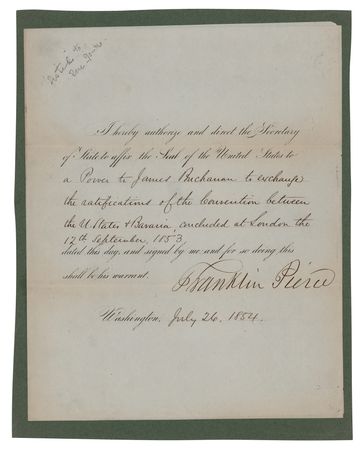 I hereby authorize and direct the Secretary
of State to affix the Seal of the United States to
a Power to James Buchanan to exchange
the ratifications of the Convention between
the U. States & Bavaria, concluded at London the
12th September, 1853
dated this day, and signed by me: and for so doing this
shall be his warrant.
Franklin Pierce
Washington, July 26, 1854.